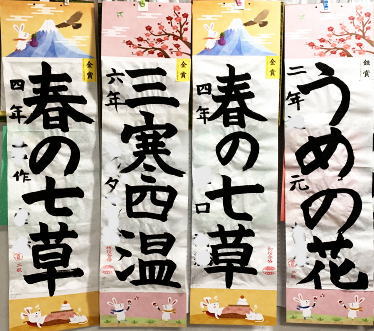 金賞
春の七草
四年
作
金賞
三寒四温
六年
夕
金賞
春の七草
四年
口
銀賞
うめの花
二年
元